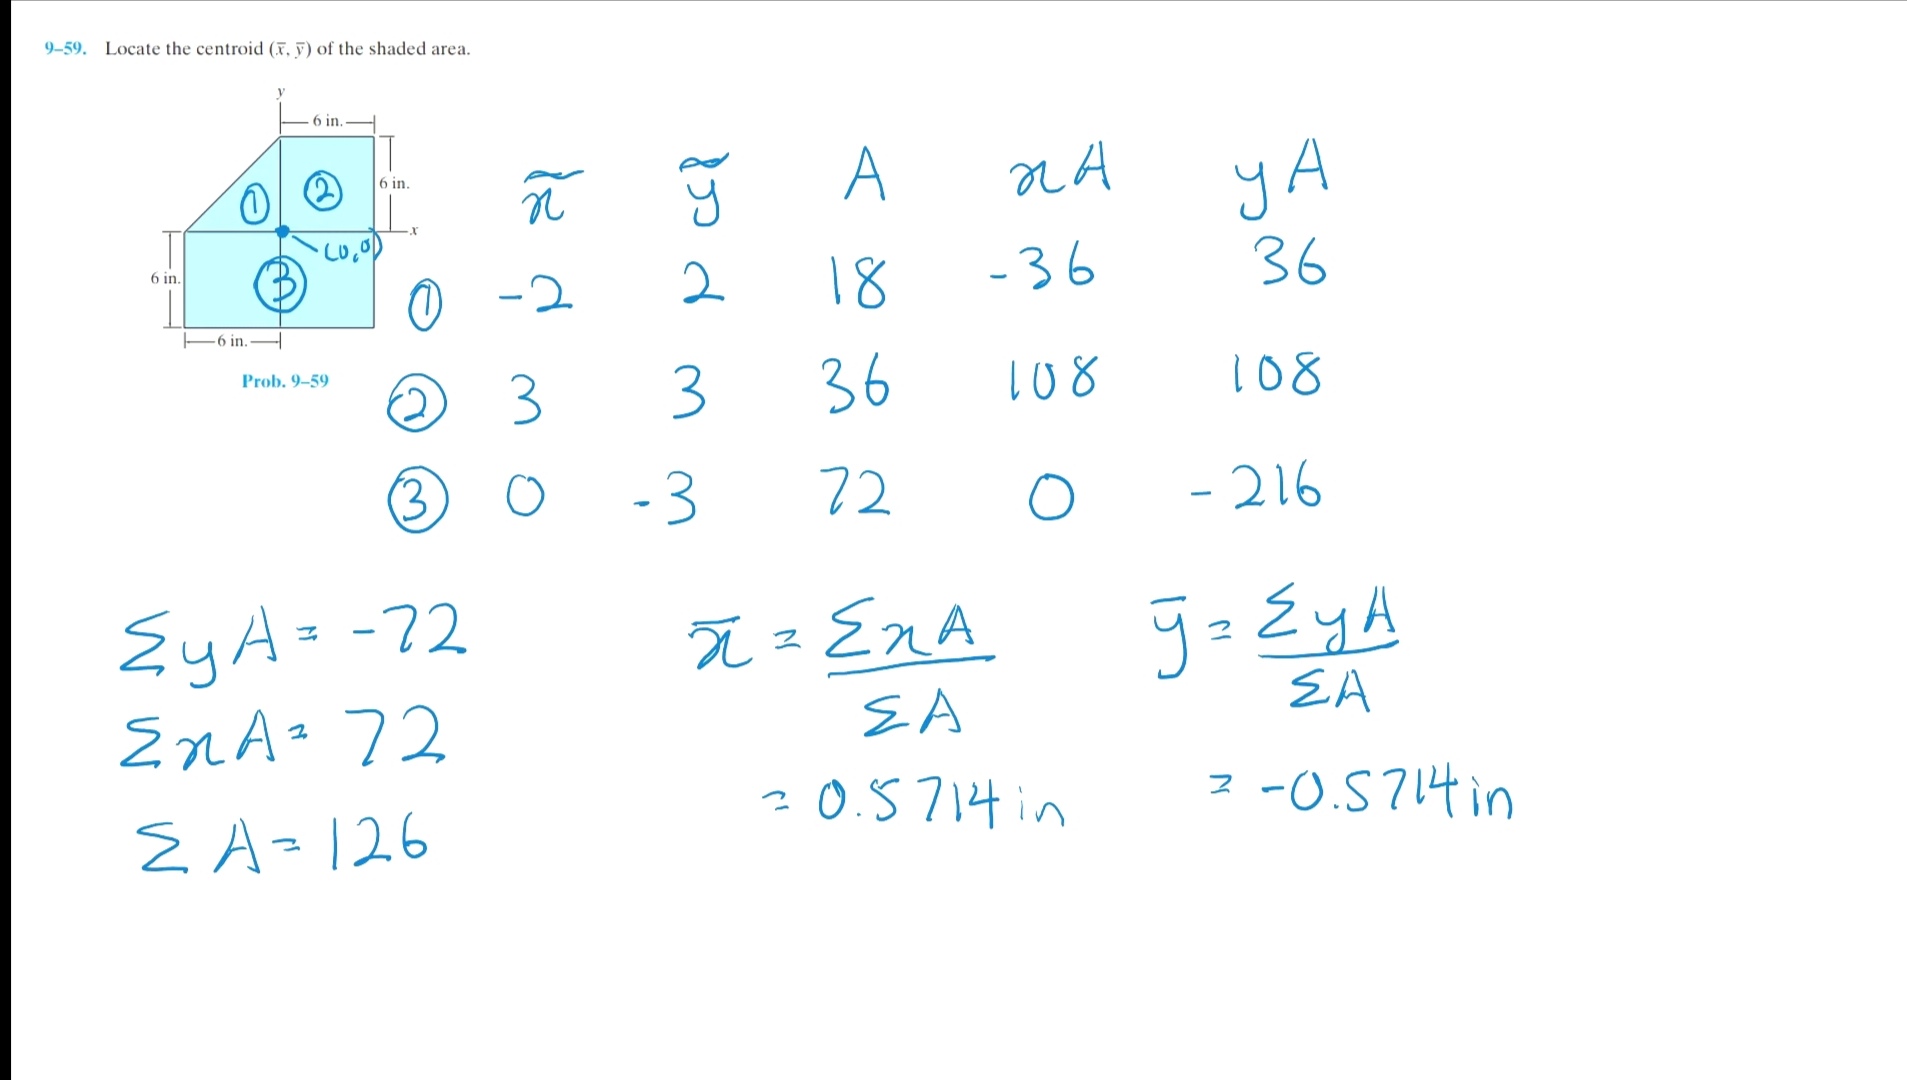 9–59. Locate the centroid (x̄, ȳ) of the shaded area.
y
6 in.
① ② 6 in.
x
(0,0)
6 in. ③
6 in.
Prob. 9–59
x̃ ỹ A xA yA
① -2 2 18 -36 36
② 3 3 36 108 108
③ 0 -3 72 0 -216
ΣyA = -72
ΣxA = 72
ΣA = 126
x̄ = ΣxA
ΣA
= 0.5714 in
ȳ = ΣyA
ΣA
= -0.5714 in